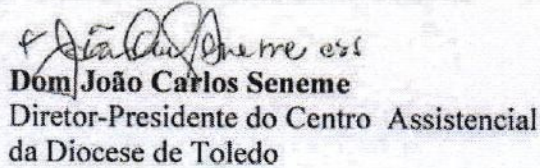 + João Carlos Seneme css
Dom João Carlos Seneme
Diretor-Presidente do Centro Assistencial
da Diocese de Toledo